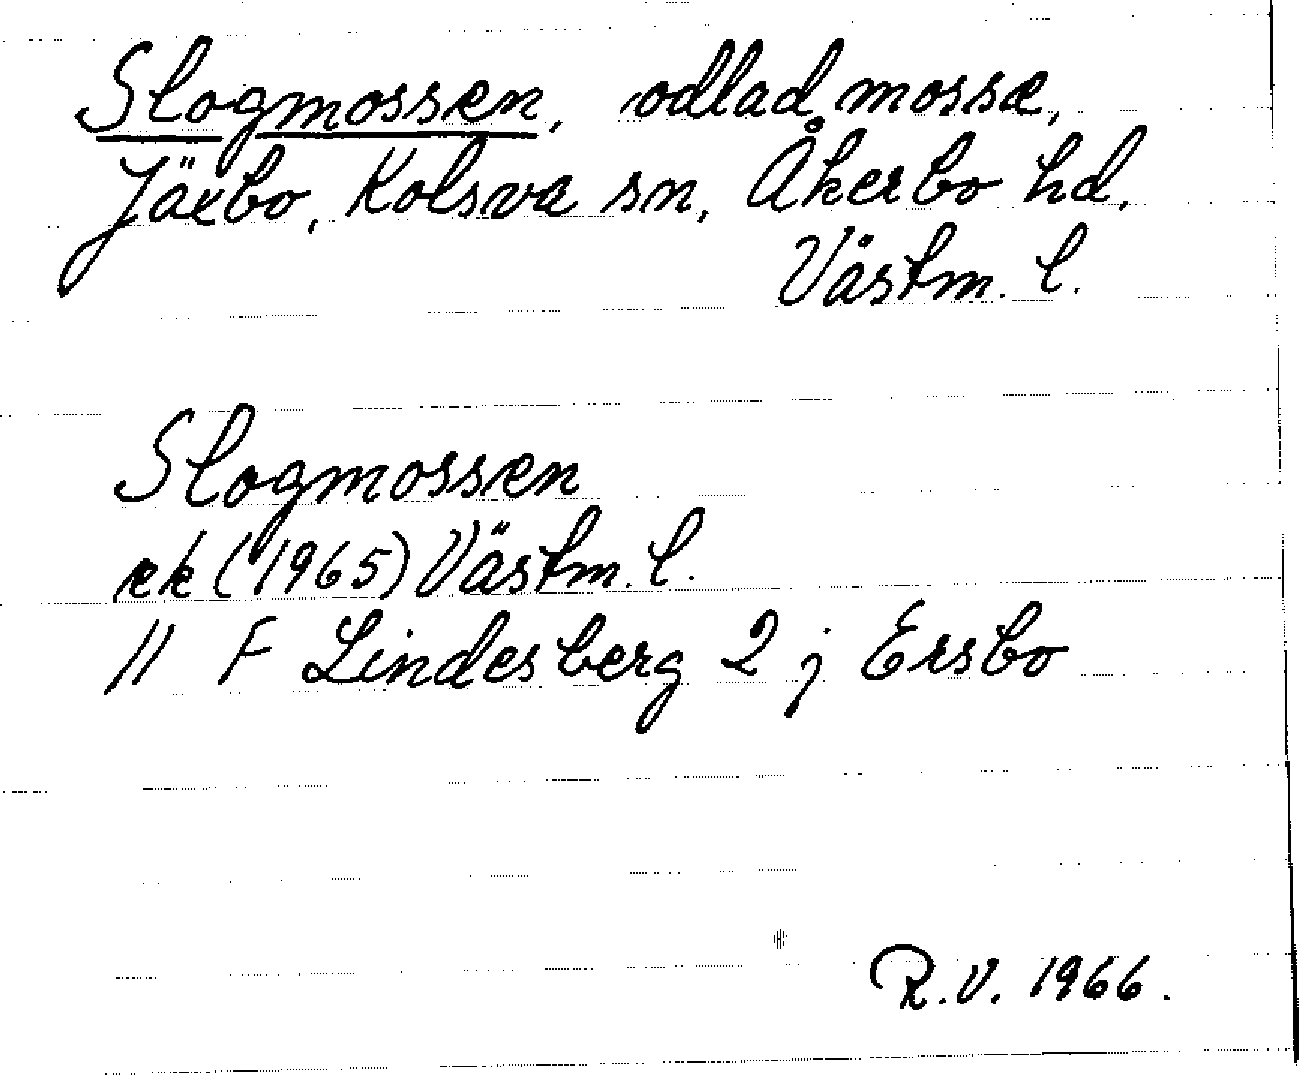 Slogmossen, odlad mosse,
Jäxbo, Kolsva sn, Åkerbo hd,
Västm. l.
Slogmossen
ek (1965) Västm. l.
11 F Lindesberg 2 j Ersbo
R.V. 1966.